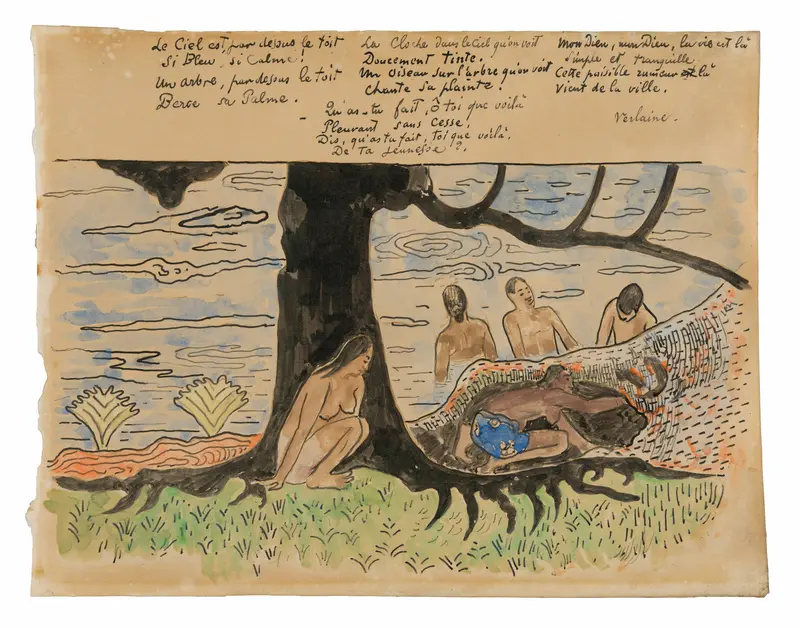 Le Ciel est, par dessus le toit
Si Bleu, si Calme!
Un arbre, par dessus le toit
Berce sa Palme.
La Cloche dans le Ciel qu'on voit
Doucement tinte.
Un Oiseau sur l'arbre qu'on voit
Chante sa plainte!
Mon Dieu, mon Dieu, la vie est là
Simple et tranquille.
Cette paisible rumeur là
Vient de la ville.
Qu'as-tu fait, Ô toi que voilà
Pleurant sans Cesse.
Dis, qu'as tu fait, toi que voilà.
De Ta Jeunesse ?
Verlaine.